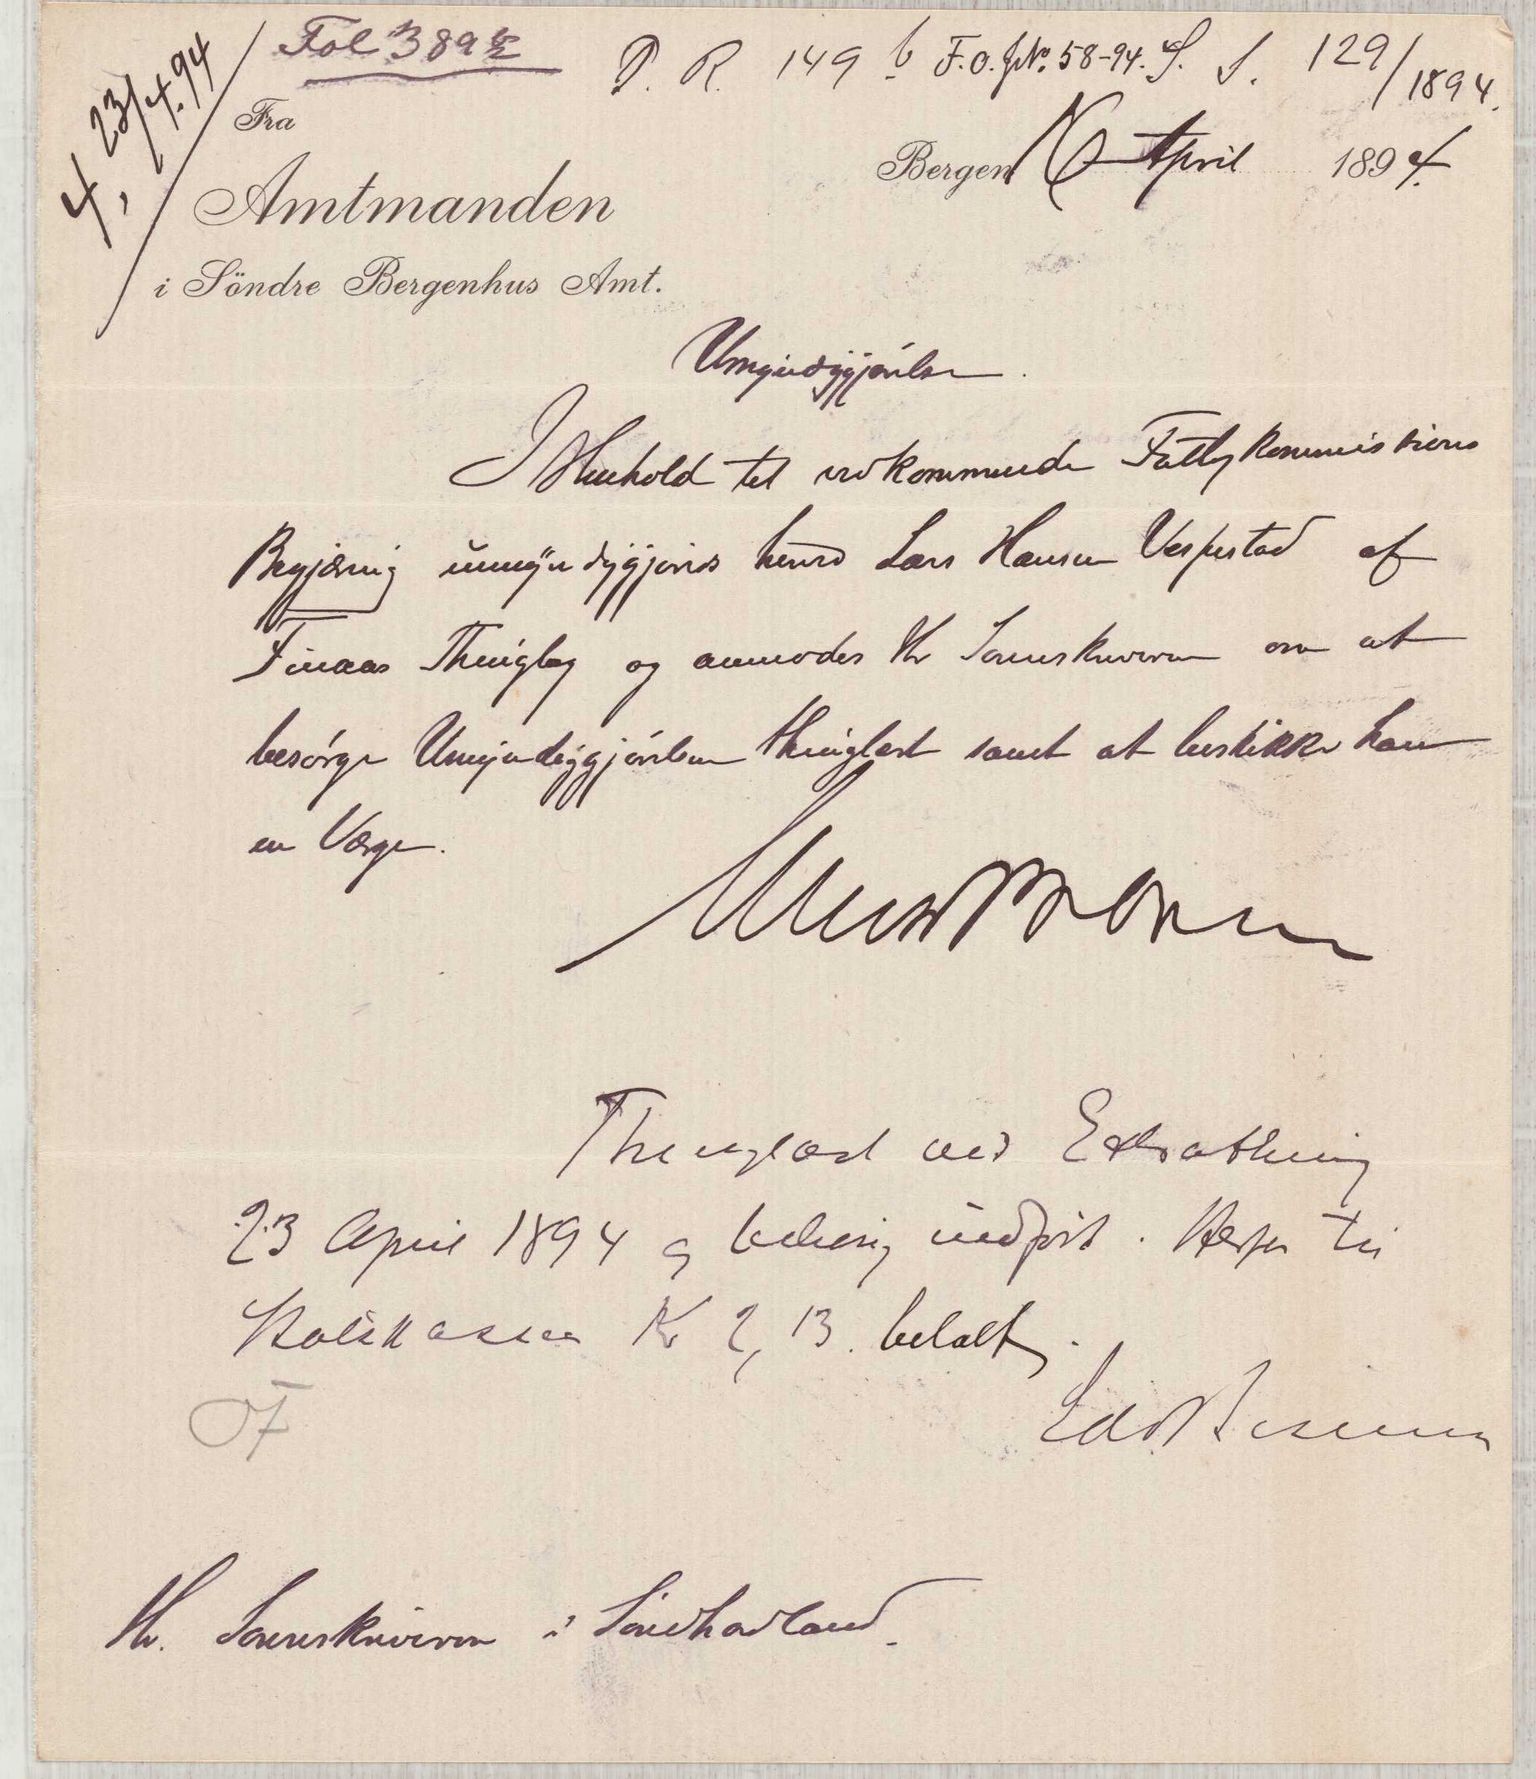 4, 23/4.94
Fol 389
P. R. 149 b F.O. JNo. 58-94. S. S. 129/1894.
Fra
Bergen April 1894.
Amtmanden
i Söndre Bergenhus Amt.
Umyndiggjørelse.
I Henhold til vedkommende Fattigkommissions
Begjæring umyndiggjøres herved Lars Hansen Vespestad af
Finaas Thinglag og anmodes Hr Sorenskriveren om at
besørge Umyndiggjørelsen thinglæst samt at beskikke ham
en Værge.
Thinglæst ved Extrathing
23 April 1894 og behørig indført. Herfor til
Statskassen Kr 2,13. betalt.
OF
Hr. Sorenskriveren i Söndhordland.